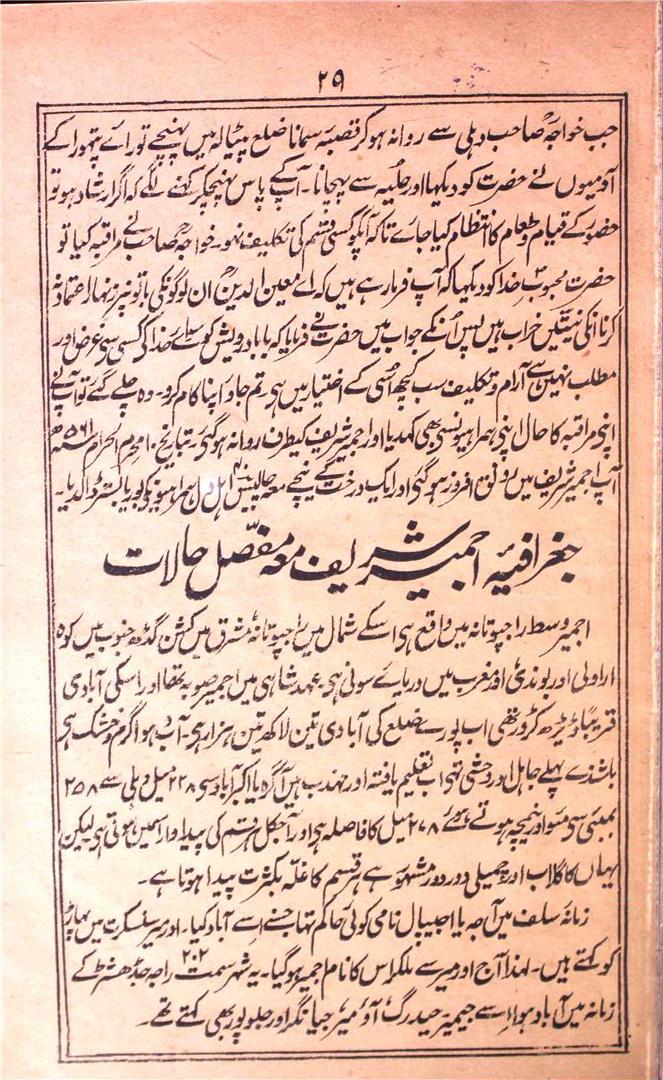 ۲۹
جب خواجہؒ صاحب دہلی سے روانہ ہوکر قصبہ سمانا ضلع پٹیالہ میں پہنچے تو رائے پتھورا کے
آدمیوں نے حضرت کو دیکھا اور حلیہ سے پہچانا۔ آپ کے پاس پہنچکر کہنے لگے کہ اگر ارشاد ہو تو
حضور کے قیام و طعام کا انتظام کیا جائے تاکہ آپکو کسی قسم کی تکلیف نہو۔ خواجہؒ صاحب نے مراقبہ کیا تو
حضرت محبوبؐ خدا کو دیکھا کہ آپ فرمار ہے ہیں کہ اے معین الدینؒ ان لوگونکی باتونپر زنہار اعتماد نہ
کرنا انکی نیتیں خراب ہیں پس اُنکے جواب میں حضرت نے فرمایا کہ بابا درویش کو سوائے خدا کی کسی سی غرض اور
مطلب نہیں ہے آرام و تکلیف سب کچھ اُسی کے اختیار میں ہی تم جاؤ اپنا کام کرو۔ وہ چلے گئے تو آپ نے
اپنی مراقبہ کا حال اپنی ہمراہیونسی بھی کہدیا اور اجمیر شریف کیطرف روانہ ہوگئی۔ بتاریخ ۱۰ محرم الحرام ۵۶۱ھ
آپ اجمیر شریف میں رونق افروز ہوگئی اور ایک درخت کے نیچے معہ چالیس اہل دل ہمراہیونکی بوریا بستر ڈالدیا۔
جغرافیئہ اجمیر شریف معہ مفصّل حالات
اجمیر وسط راجپوتانہ میں واقع ہی اسکے شمال میں راجپوتانہ، مشرق میں کشن گڈھ جنوب میں کوہ
اراولی اور بوندی اور مغرب میں دریائے سونی ہی۔ عہد شاہی میں اجمیر صوبہ تھا اور اسکی آبادی
قریباً ڈیڑھ کروڑ تھی اب پورے ضلع کی آبادی تین لاکھ تین ہزار ہی۔ آب و ہوا گرم و خشک ہی
باشندے پہلے جاہل اور وحشی تھی اب تعلیم یافتہ اور مہذب ہیں آگرہ یا اکبر آباد سی ۲۲۸ میل دہلی سے ۲۵۸
بمبئی سی مئو اور نمیچہ ہوتے ہوئے ۲۷۸ میل کا فاصلہ ہی اور آجکل ہر قسم کی پیداوار اسمیں ہوتی ہی لیکن
یہاں کا گلاب اور چمیلی دور دور مشہور ہے ہر قسم کا غلّہ بکثرت پیدا ہوتا ہے۔
زمانہ سلف میں آجہ یا اجیپال نامی کوئی حاکم تھا جسنے اِسے آباد کیا۔ اور میر سنسکرت میں پہاڑ
کو کہتے ہیں۔ لہذا آج اور میر سے ملکر اس کا نام اجمیر ہوگیا۔ یہ شہر سمت ۲۰۲ راجہ جدھشتر کے
زمانہ میں آباد ہوا اسے جیمیر، جیدرگ، آؤمیر، جیانگر اور جلوپور بھی کہتے تھے۔